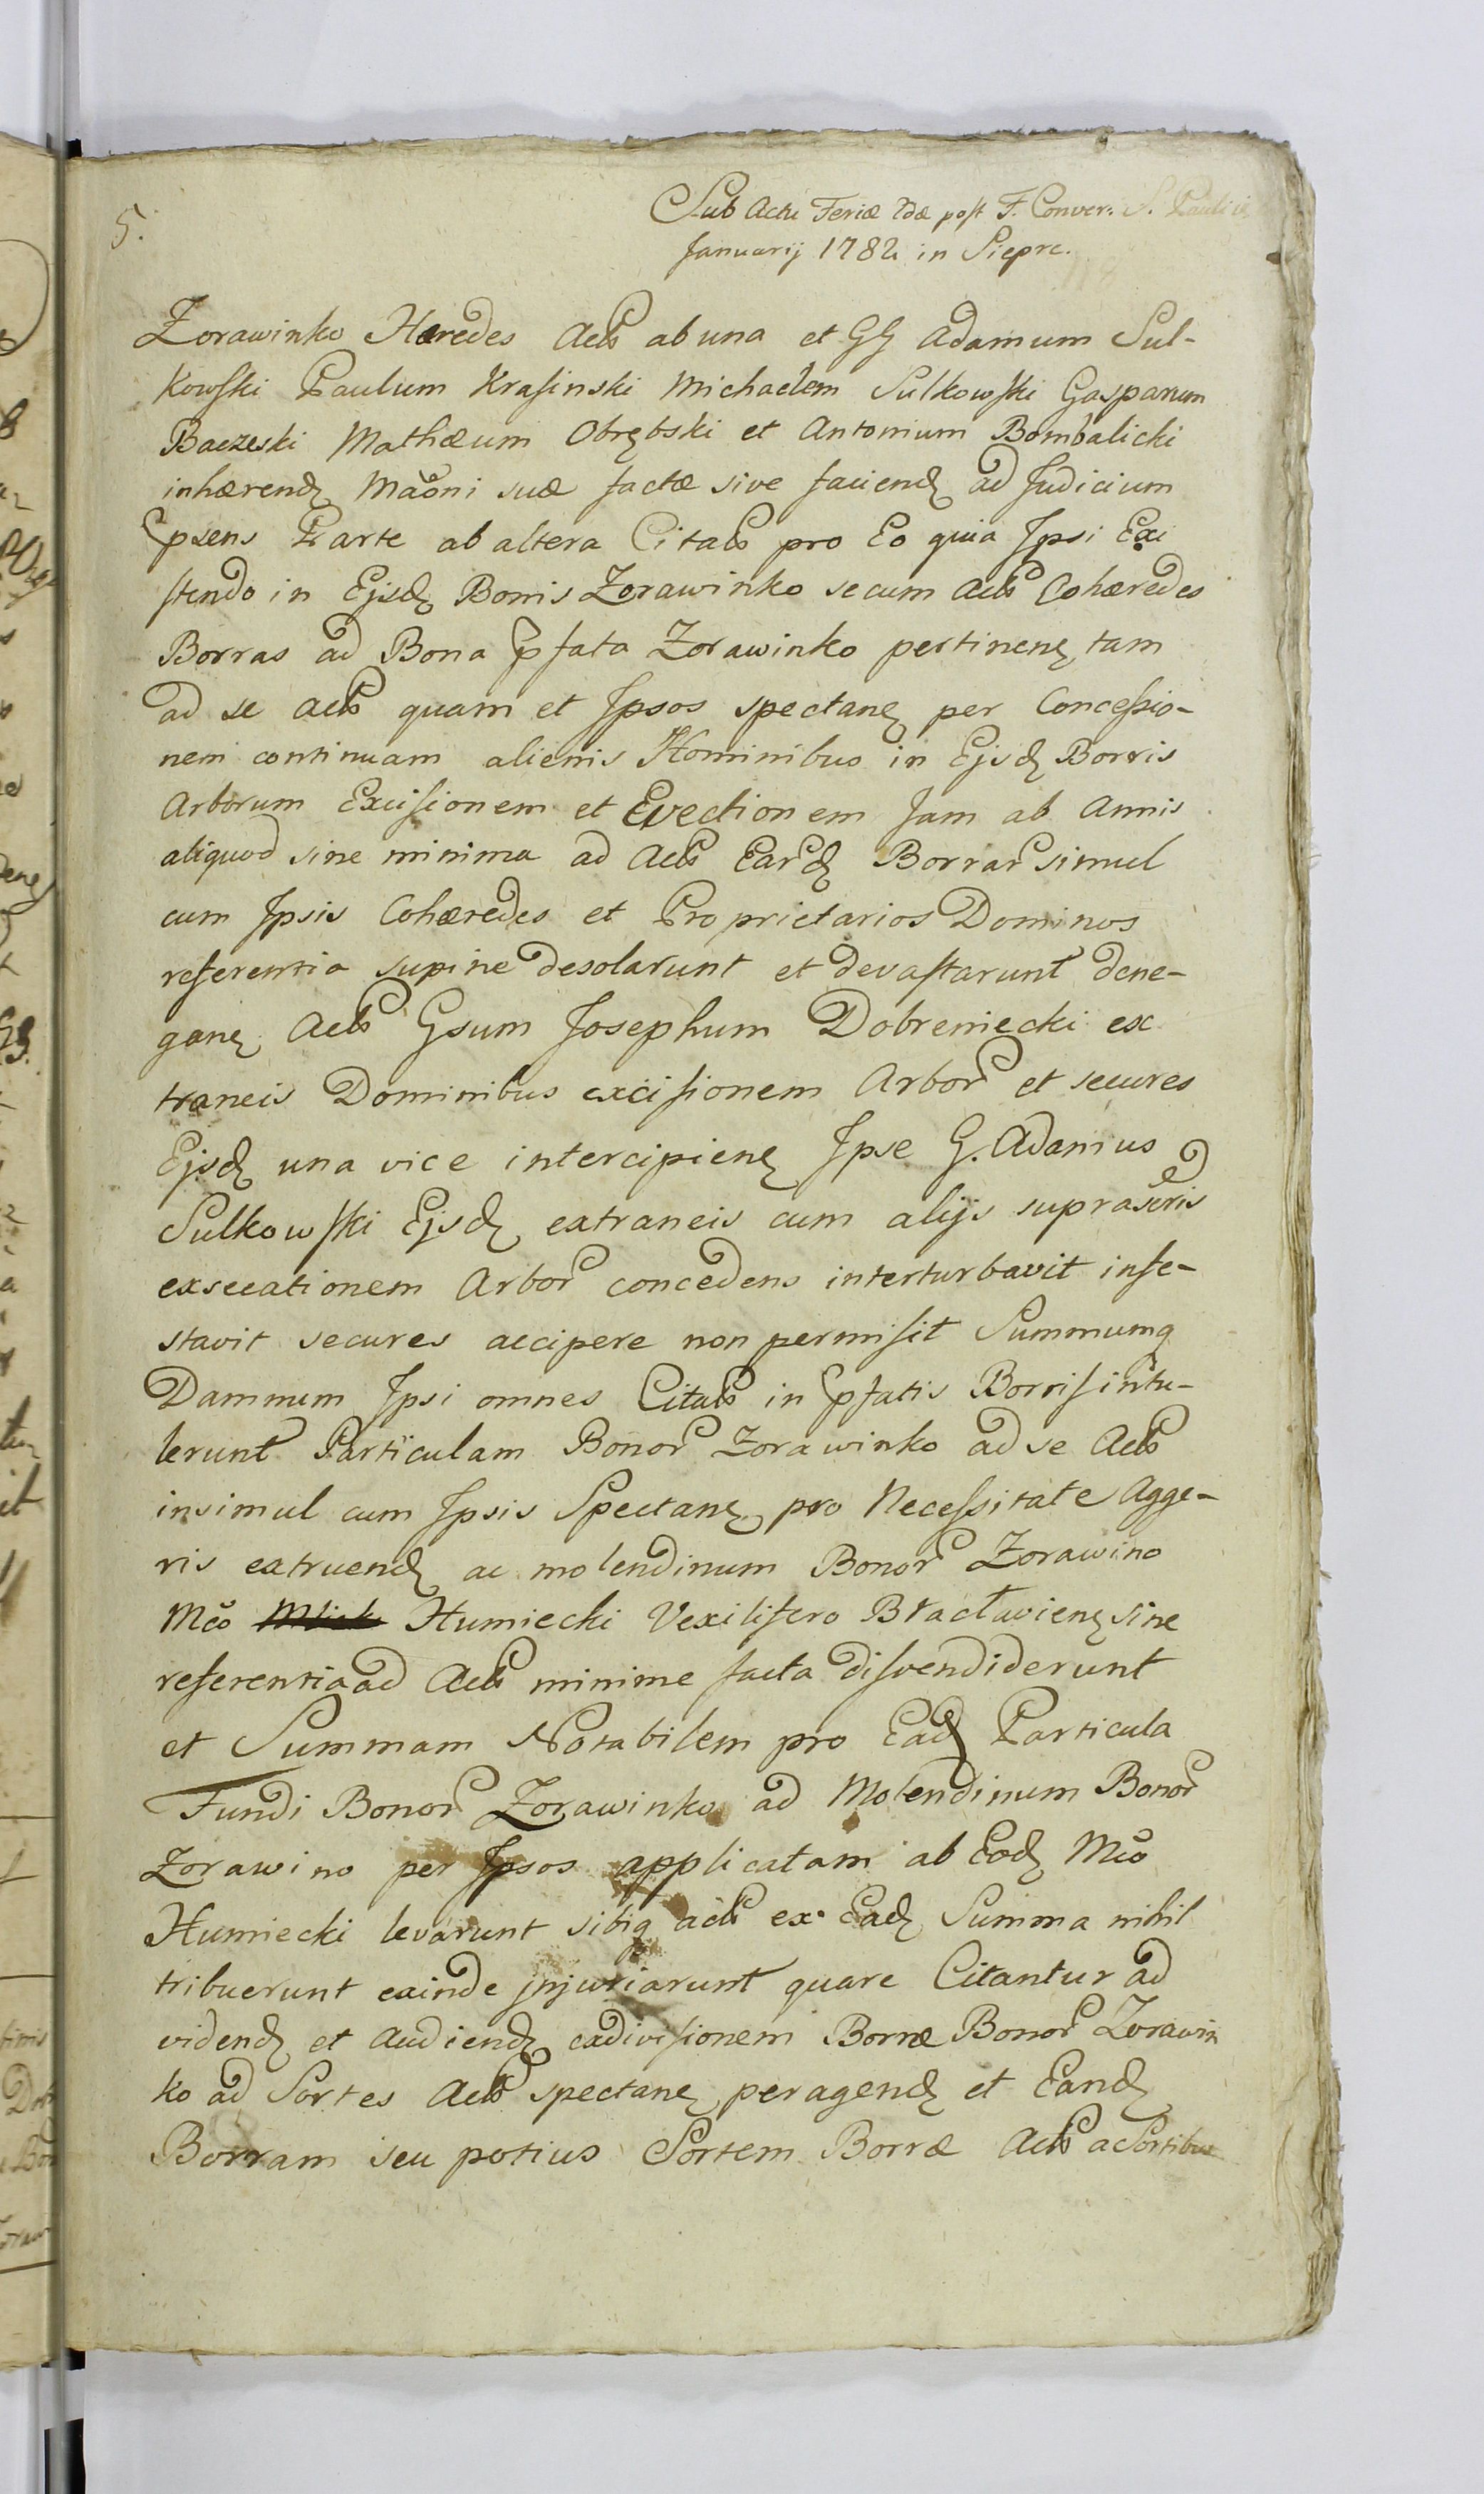 5.
Sub Actu Feriæ 2dæ post F. Conver: S. Pauli
Januarij 1782 in Sieprc.
Zorawinko Hæredes Actˢ ab una et GG Adamum Sul-
kowski Paulum Krasinski Michaelem Sulkowski Gasparum
Baczeski Mathæum Obrębski et Antonium Bombalicki
inhærendꝫ Maõni suæ factæ sive faciendꝫ ad Judicium
pſens Parte ab altera Citatˢ pro Eo quia Ipsi Exi
stendo in Ejsdꝫ Bonis Zorawinko secum Actˢ Cohæredes
Borras ad Bona pfata Zorawinko pertinenꝫ tam
ad se Actˢ quam et Ipsos spectanꝫ per Concessio-
nem continuam alienis Hominibus in Ejsdꝫ Borris
Arborum Excisionem et Evectionem Jam ab Annis
aliquod sine minima ad Actˢ Eardꝫ Borrarͬ simul
cum Ipsis Cohæredes et Proprietarios Dominos
referentia supine desolarunt et devastarunt dene-
ganꝫ Actˢ Gsum Josephum Dobreniecki ex
traneis Dominibus excisionem Arborͬ et secures
Ejsdꝫ una vice intercipienꝫ Ipse G. Adamus
Sulkowski Ejsdꝫ extraneis cum alijs suprascris
exsecationem Arborͬ concedens interturbavit infe-
stavit secures accipere non permisit Summumq
Damnum Ipsi omnes Citatˢ in pfatis Borris intu-
lerunt Particulam Bonorͬ Zorawinko ad se Actˢ
insimul cum Ipsis Spectanꝫ pro Necessitate Agge-
ris extruendꝫ ac molendinum Bonorͬ Zorawino
Mco Humiecki Vexilifero Bractavienꝫ sine
referentia ad Actˢ minime facta disvendiderunt
et Summam Notabilem pro Eadꝫ Particula
Fundi Bonorͬ Zorawinko ad Molendinum Bonorͬ
Zorawino per Ipsos applicatam ab Eodꝫ Mco
Humiecki levarunt sibiq actˢ ex Eadꝫ Summa nihil
tribuerunt exinde jnjuriarunt quare Citantur ad
videndꝫ et Audiendꝫ exdivisionem Borræ Bonorͬ Zorawin
ko ad Sortes Actˢ spectanꝫ peragendꝫ et Eandꝫ
Borram seu potius Sortem Borræ Actˢ a Sortibus